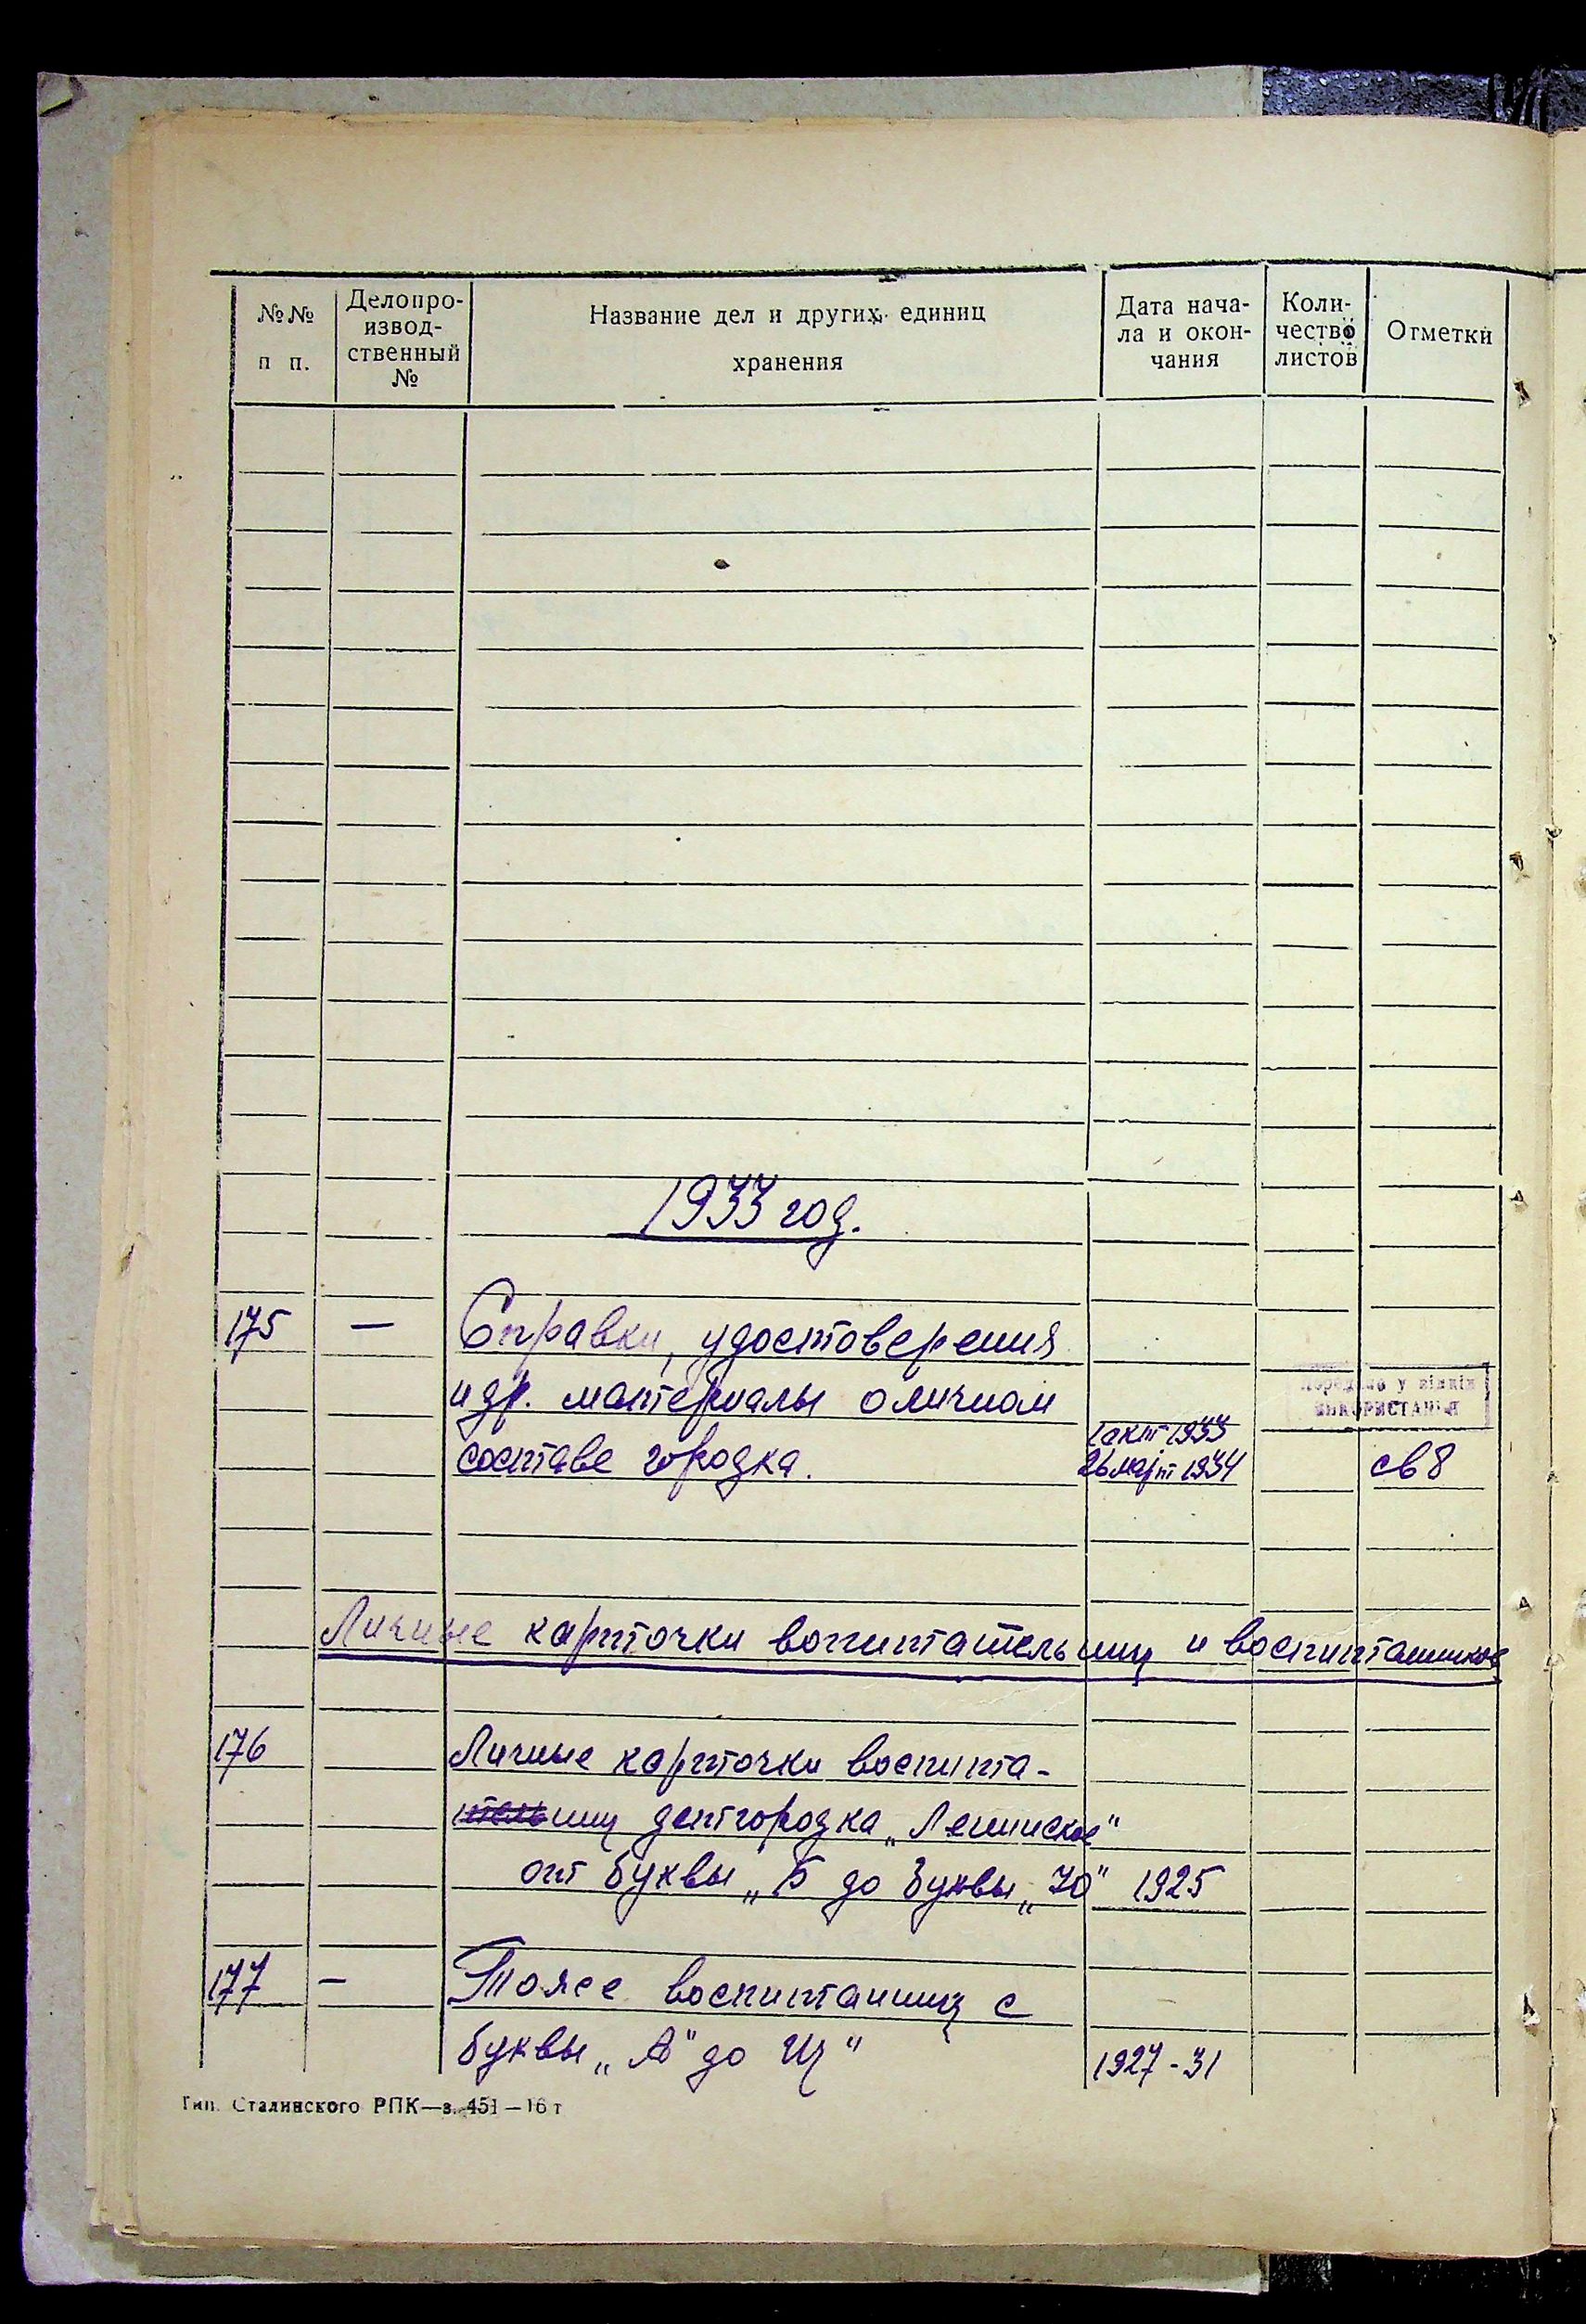 №№ п п.
Делопро-
извод-
ственный
№
Название дел и других единиц
хранения
Дата нача-
ла и окон-
чания
Коли-
чество
листов
Отметки
1933 год.
175 — Справки, удостоверения
и др. материалы о личном
1 окт 1933
составе городка. 26 март 1934 св 8
Передано у відділ
ВИКОРИСТАННЯ
Личные карточки воспитательниц и воспитанников
176 Личные карточки воспита-
тельниц детгородка „Ленинское"
от буквы „Б до буквы „Ю" 1925
177 — То же воспитанниц с
буквы „А" до Щ" 1927-31
Тип. Сталинского РПК—з. 451—16 т